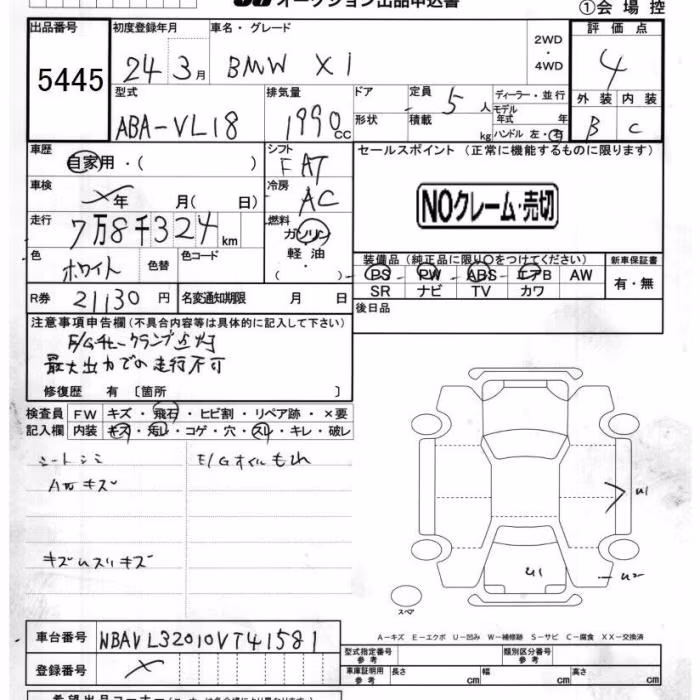 オークション出品申込書
①会場控
出品番号 初度登録年月 車名・グレード 2WD・4WD 評価点
5445 24年3月 BMW X1 4
型式 排気量 ドア 定員 5人 ディーラー・並行 外装 内装
ABA-VL18 1990cc 形状 積載 kg モデル年式 年 ハンドル 左・右 B C
車歴 自家用・( ) シフト FAT セールスポイント (正常に機能するものに限ります)
車検 ×年 月( 日) 冷房 AC
NOクレーム・売切
走行 7万8千324km 燃料 ガソリン 軽油・( )
色 ホワイト 色替 色コード
装備品 (純正品に限り○をつけてください) 新車保証書
PS PW ABS エアB AW 有・無
SR ナビ TV カワ
R券 21130円 名変通知期限 月 日
後日品
注意事項申告欄 (不具合内容等は具体的に記入して下さい)
E/Gチェックランプ点灯
最大出力での走行不可
修復歴 有 〔箇所 〕
検査員 FW キズ・飛石・ヒビ割・リペア跡・×要
記入欄 内装 キズ・汚レ・コゲ・穴・スレ・キレ・破レ
シートシミ E/Gオイルもれ
A瓜キズ
キズムスリキズ
U1
U1
U2
スペア
A-キズ E-エクボ U-凹み W-補修跡 S-サビ C-腐食 XX-交換済
車台番号 NBAVL32010VT41581
型式指定番号 参考 類別区分番号 参考
登録番号 ×
車庫証明用 参考 長さ cm 幅 cm 高さ cm